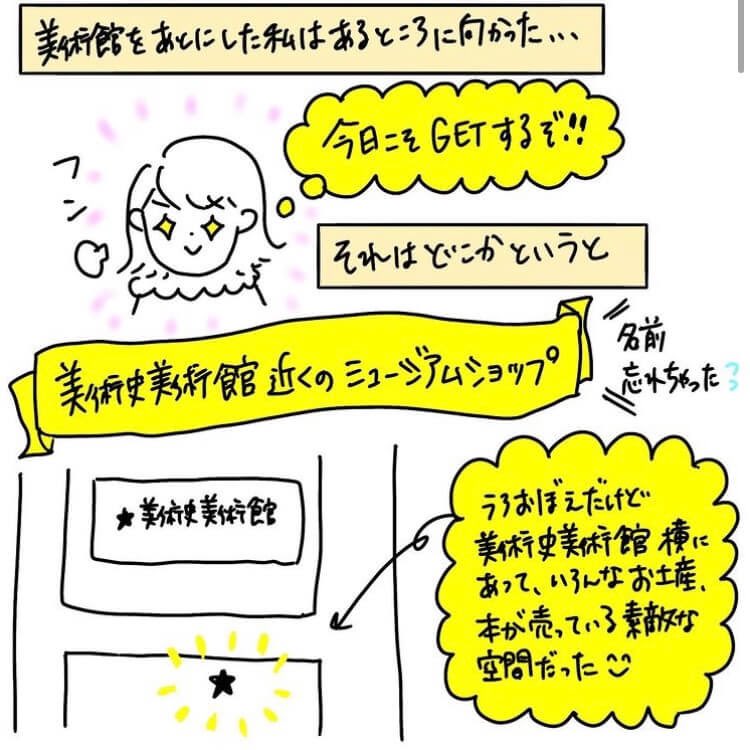 美術館をあとにした私はあるところに向かった...
今日こそGETするぞ!!
フン
それはどこかというと
美術史美術館近くのミュージアムショップ
名前
忘れちゃった
★美術史美術館
うろおぼえだけど
美術史美術館横に
あって、いろんなお土産、
本が売っている素敵な
空間だった
★